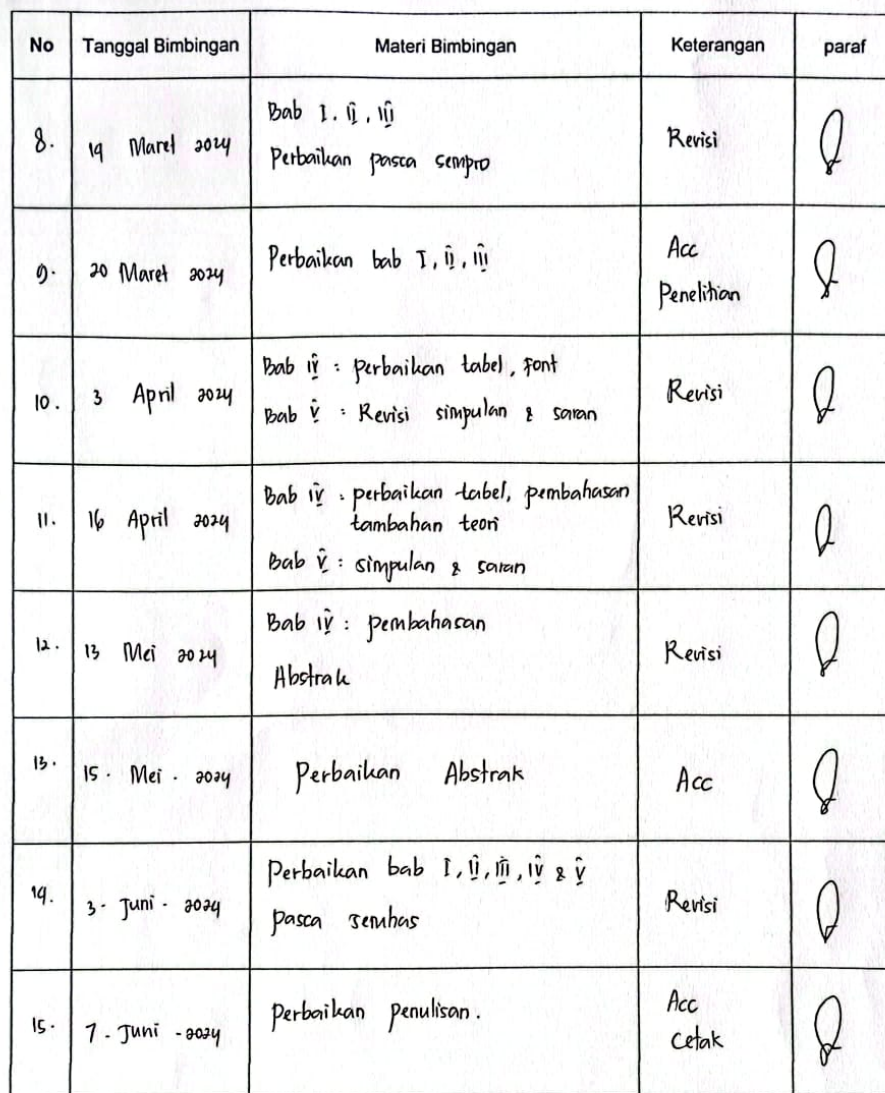 No Tanggal Bimbingan Materi Bimbingan Keterangan paraf
8. 14 Maret 2024 Bab I, II, III Revisi
Perbaikan pasca sempro
9. 20 Maret 2024 Perbaikan bab I, II, III Acc
Penelitian
10. 3 April 2024 Bab IV : perbaikan tabel, Font Revisi
Bab V : Revisi simpulan & saran
11. 16 April 2024 Bab IV : perbaikan tabel, pembahasan Revisi
tambahan teori
Bab V : simpulan & saran
12. 13 Mei 2024 Bab IV : pembahasan Revisi
Abstrak
13. 15 . Mei . 2024 Perbaikan Abstrak Acc
14. 3 - Juni - 2024 Perbaikan bab I, II, III, IV & V Revisi
pasca semhas
15. 7 - Juni - 2024 Perbaikan penulisan. Acc
Cetak